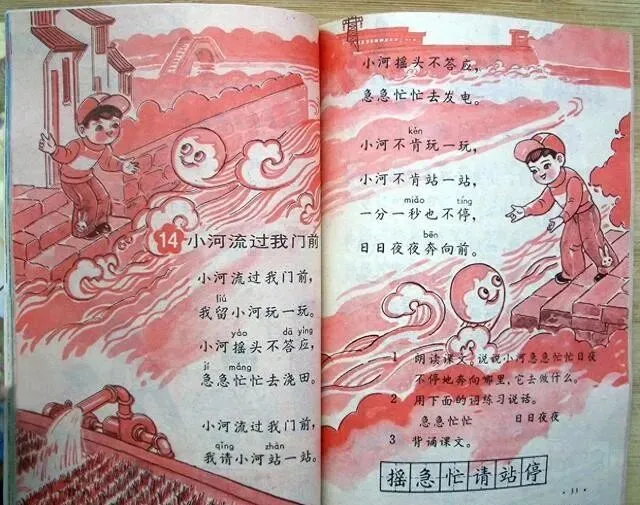 14 小河流过我门前
小河流过我门前，
liú
我留小河玩一玩。
yáo dā yìng
小河摇头不答应，
jí máng
急急忙忙去浇田。
小河流过我门前，
qǐng zhàn
我请小河站一站。
小河摇头不答应，
急急忙忙去发电。
kěn
小河不肯玩一玩，
小河不肯站一站，
miǎo tíng
一分一秒也不停，
bēn
日日夜夜奔向前。
1 朗读课文。说说小河急急忙忙日夜
不停地奔向哪里，它去做什么。
2 用下面的词练习说话。
急急忙忙 日日夜夜
3 背诵课文。
摇急忙请站停
·33·